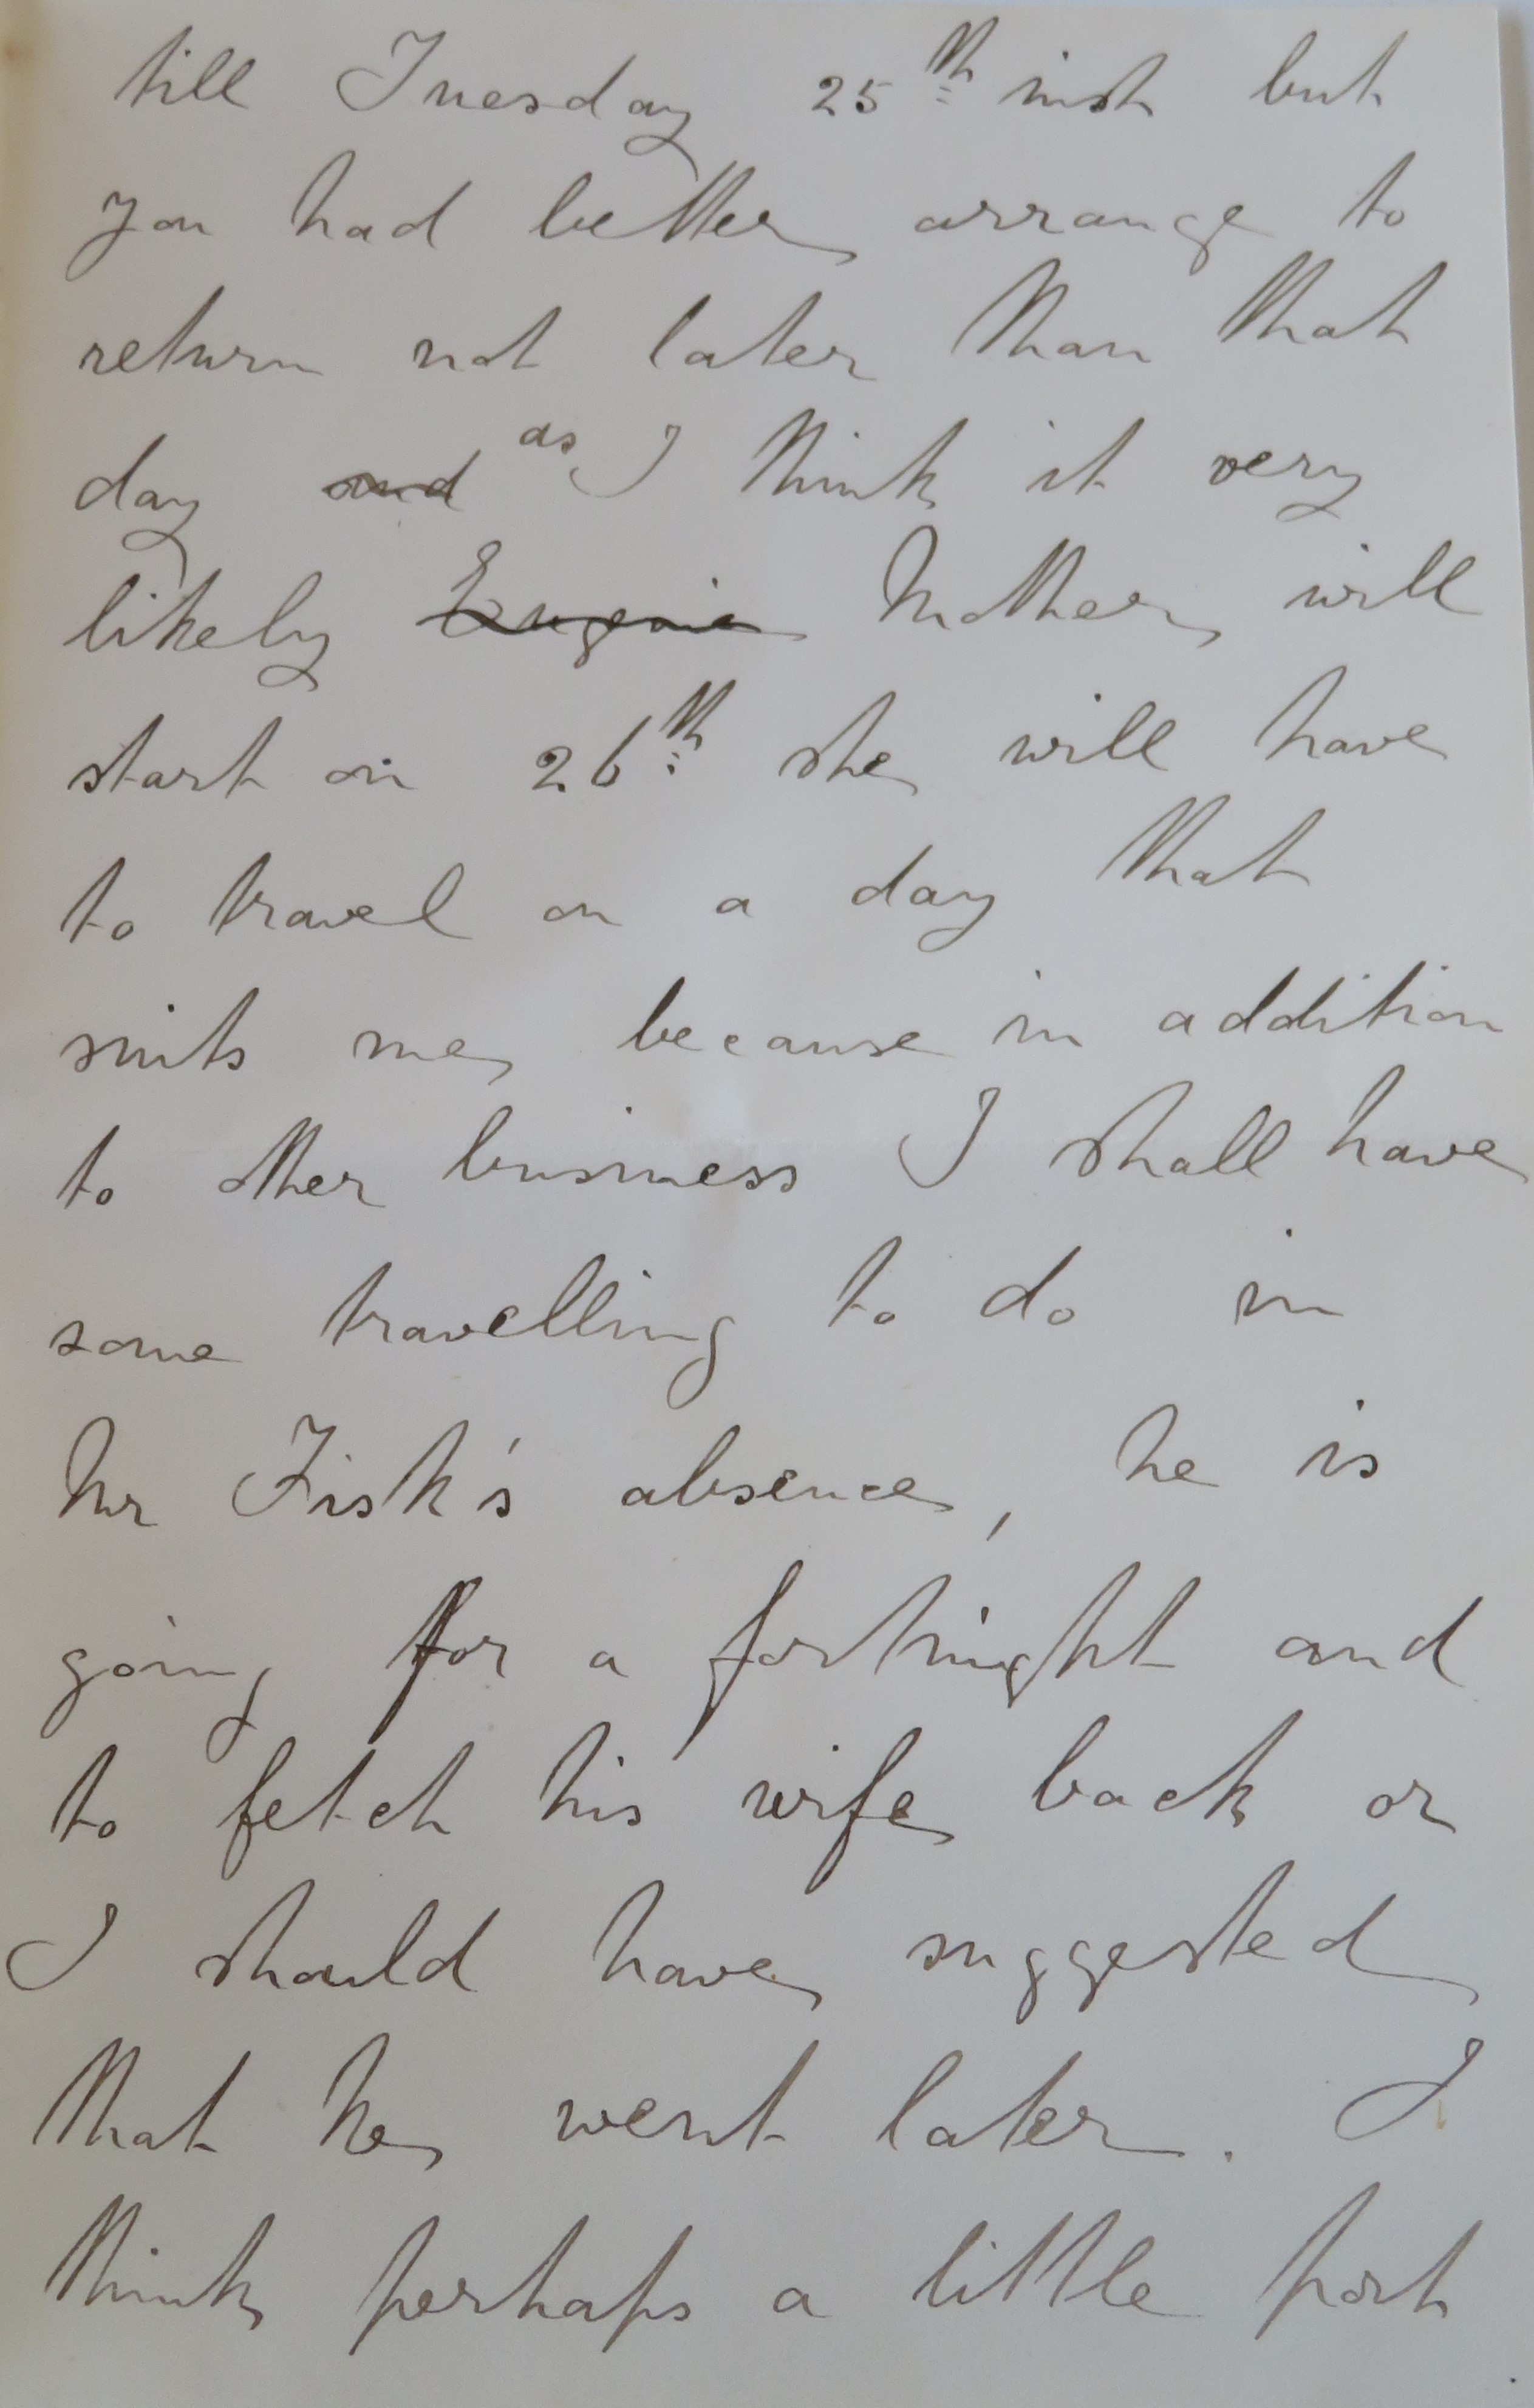 till Tuesday 25th inst but
you had better arrange to
return not later than that
day and as I think it very
likely Eugenie Mother will
start on 26th she will have
to travel on a day that
suits me because in addition
to other business I shall have
some travelling to do in
Mr Fisk's absence, he is
going for a fortnight and
to fetch his wife back or
I should have suggested
that he went later. I
think perhaps a little port